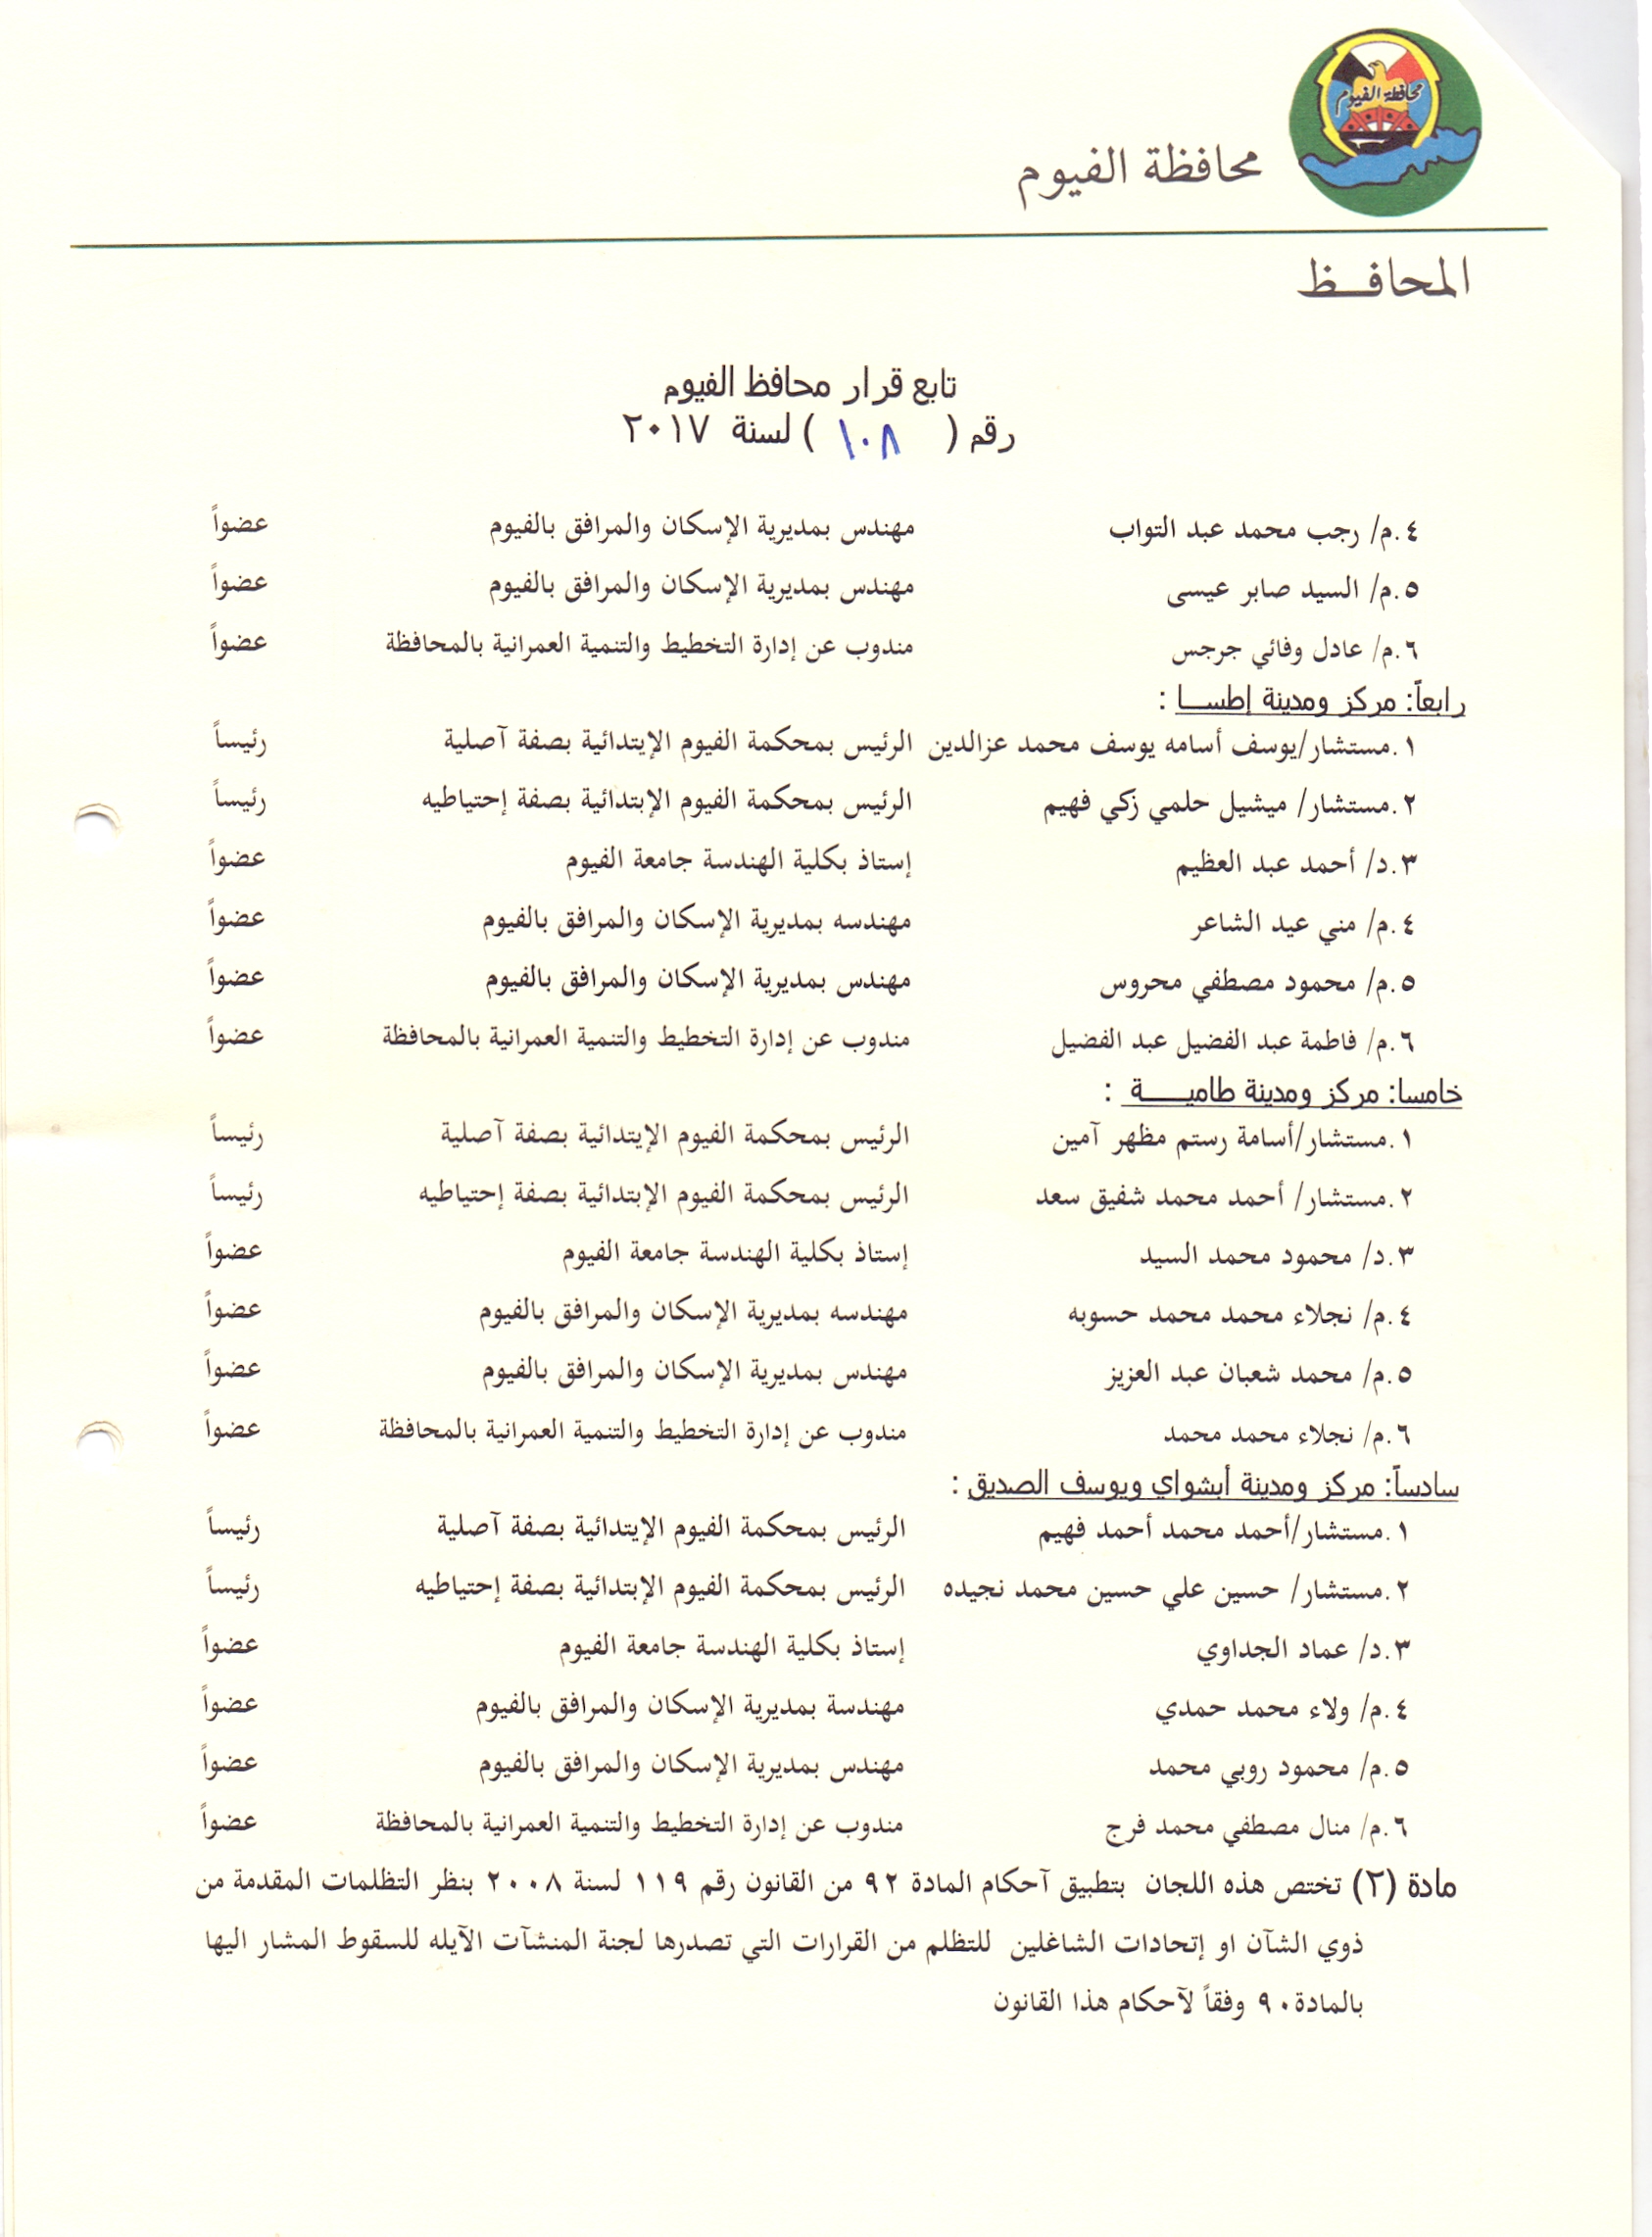 محافظة الفيوم
محافظة الفيوم
المحافـــظ
تابع قرار محافظ الفيوم
رقم ( ١٠٨ ) لسنة ٢٠١٧
٤.م/ رجب محمد عبد التواب مهندس بمديرية الإسكان والمرافق بالفيوم عضواً
٥.م/ السيد صابر عيسى مهندس بمديرية الإسكان والمرافق بالفيوم عضواً
٦.م/ عادل وفائي جرجس مندوب عن إدارة التخطيط والتنمية العمرانية بالمحافظة عضواً
رابعاً: مركز ومدينة إطســـا :
١.مستشار/يوسف أسامه يوسف محمد عزالدين الرئيس بمحكمة الفيوم الإبتدائية بصفة آصلية رئيساً
٢.مستشار/ ميشيل حلمي زكي فهيم الرئيس بمحكمة الفيوم الإبتدائية بصفة إحتياطيه رئيساً
٣.د/ أحمد عبد العظيم إستاذ بكلية الهندسة جامعة الفيوم عضواً
٤.م/ مني عيد الشاعر مهندسه بمديرية الإسكان والمرافق بالفيوم عضواً
٥.م/ محمود مصطفي محروس مهندس بمديرية الإسكان والمرافق بالفيوم عضواً
٦.م/ فاطمة عبد الفضيل عبد الفضيل مندوب عن إدارة التخطيط والتنمية العمرانية بالمحافظة عضواً
خامسا: مركز ومدينة طاميـــــة :
١.مستشار/أسامة رستم مظهر آمين الرئيس بمحكمة الفيوم الإبتدائية بصفة آصلية رئيساً
٢.مستشار/ أحمد محمد شفيق سعد الرئيس بمحكمة الفيوم الإبتدائية بصفة إحتياطيه رئيساً
٣.د/ محمود محمد السيد إستاذ بكلية الهندسة جامعة الفيوم عضواً
٤.م/ نجلاء محمد محمد حسوبه مهندسه بمديرية الإسكان والمرافق بالفيوم عضواً
٥.م/ محمد شعبان عبد العزيز مهندس بمديرية الإسكان والمرافق بالفيوم عضواً
٦.م/ نجلاء محمد محمد مندوب عن إدارة التخطيط والتنمية العمرانية بالمحافظة عضواً
سادساً: مركز ومدينة أبشواي ويوسف الصديق :
١.مستشار/أحمد محمد أحمد فهيم الرئيس بمحكمة الفيوم الإبتدائية بصفة آصلية رئيساً
٢.مستشار/ حسين علي حسين محمد نجيده الرئيس بمحكمة الفيوم الإبتدائية بصفة إحتياطيه رئيساً
٣.د/ عماد الجداوي إستاذ بكلية الهندسة جامعة الفيوم عضواً
٤.م/ ولاء محمد حمدي مهندسة بمديرية الإسكان والمرافق بالفيوم عضواً
٥.م/ محمود روبي محمد مهندس بمديرية الإسكان والمرافق بالفيوم عضواً
٦.م/ منال مصطفي محمد فرج مندوب عن إدارة التخطيط والتنمية العمرانية بالمحافظة عضواً
مادة (٢) تختص هذه اللجان بتطبيق آحكام المادة ٩٢ من القانون رقم ١١٩ لسنة ٢٠٠٨ بنظر التظلمات المقدمة من
ذوي الشآن او إتحادات الشاغلين للتظلم من القرارات التي تصدرها لجنة المنشآت الآيله للسقوط المشار اليها
بالمادة٩٠ وفقاً لآحكام هذا القانون